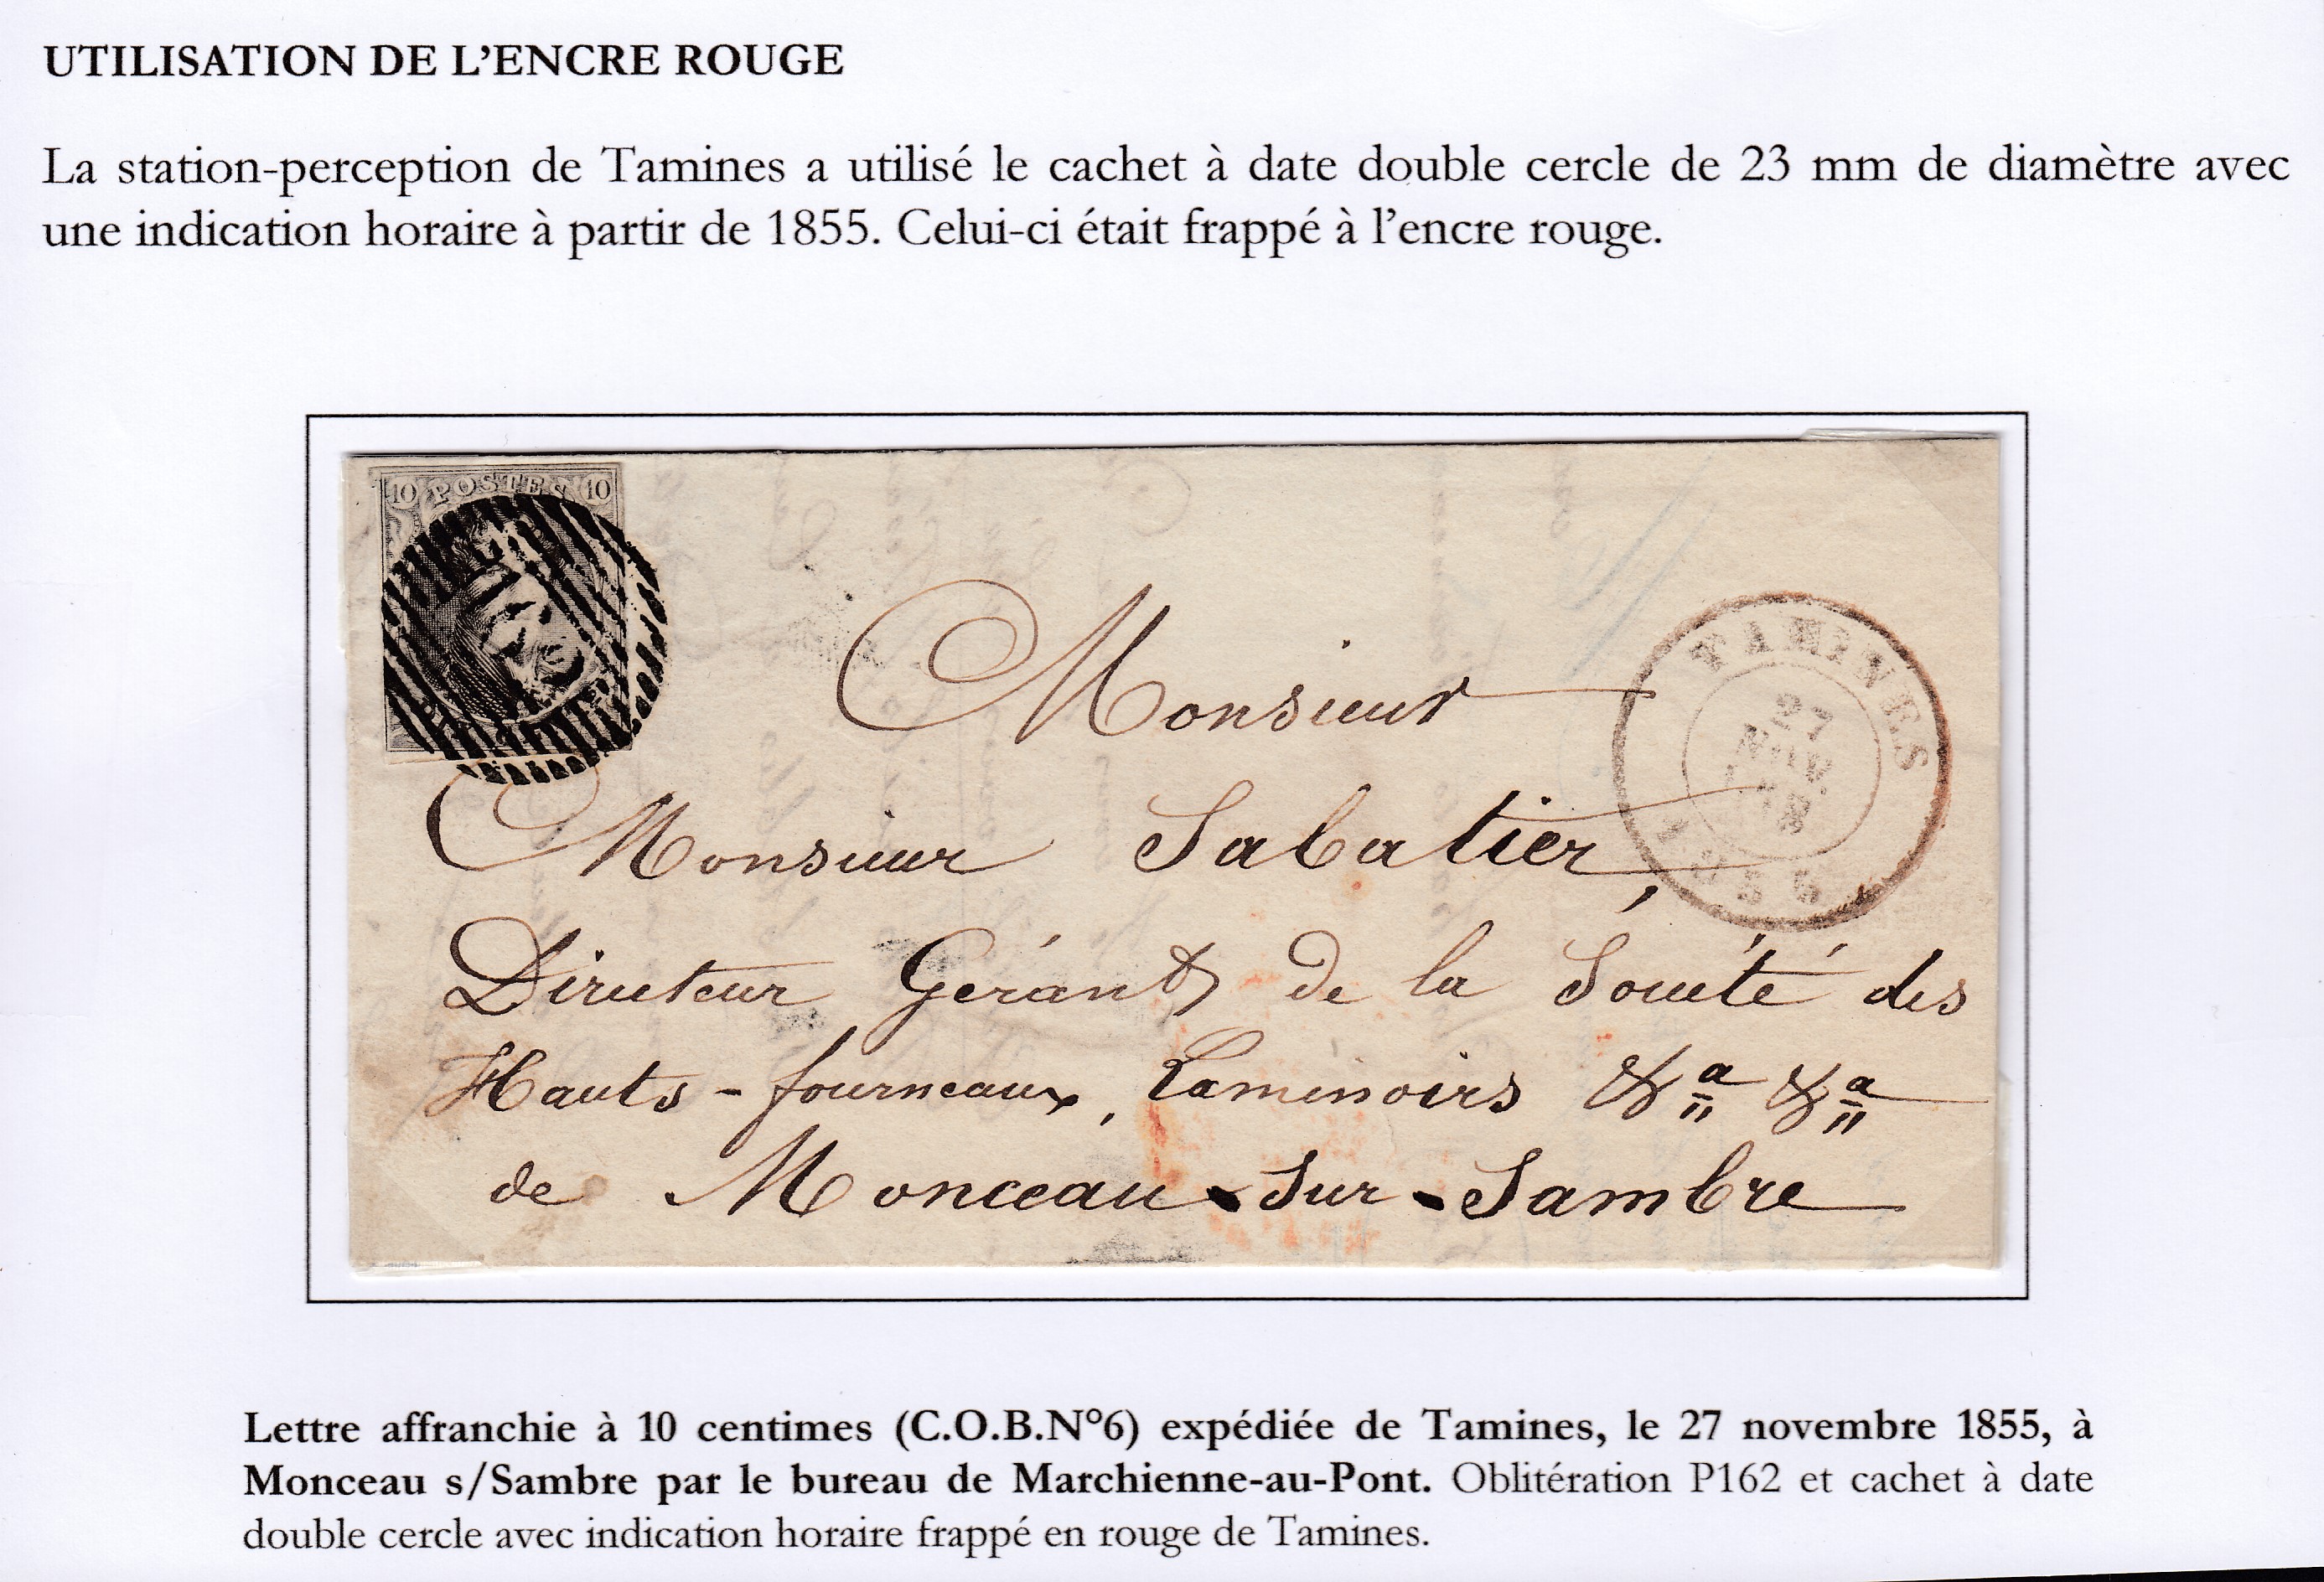 UTILISATION DE L'ENCRE ROUGE
La station-perception de Tamines a utilisé le cachet à date double cercle de 23 mm de diamètre avec
une indication horaire à partir de 1855. Celui-ci était frappé à l'encre rouge.
10 POSTES 10
Monsieur
TAMINES
27
NOV.
1855
Monsieur Sabatier,
Directeur Gérant de la Société des
Hauts-fourneaux, Laminoirs &a &a
de Monceau-sur-Sambre
Lettre affranchie à 10 centimes (C.O.B.N°6) expédiée de Tamines, le 27 novembre 1855, à
Monceau s/Sambre par le bureau de Marchienne-au-Pont. Oblitération P162 et cachet à date
double cercle avec indication horaire frappé en rouge de Tamines.